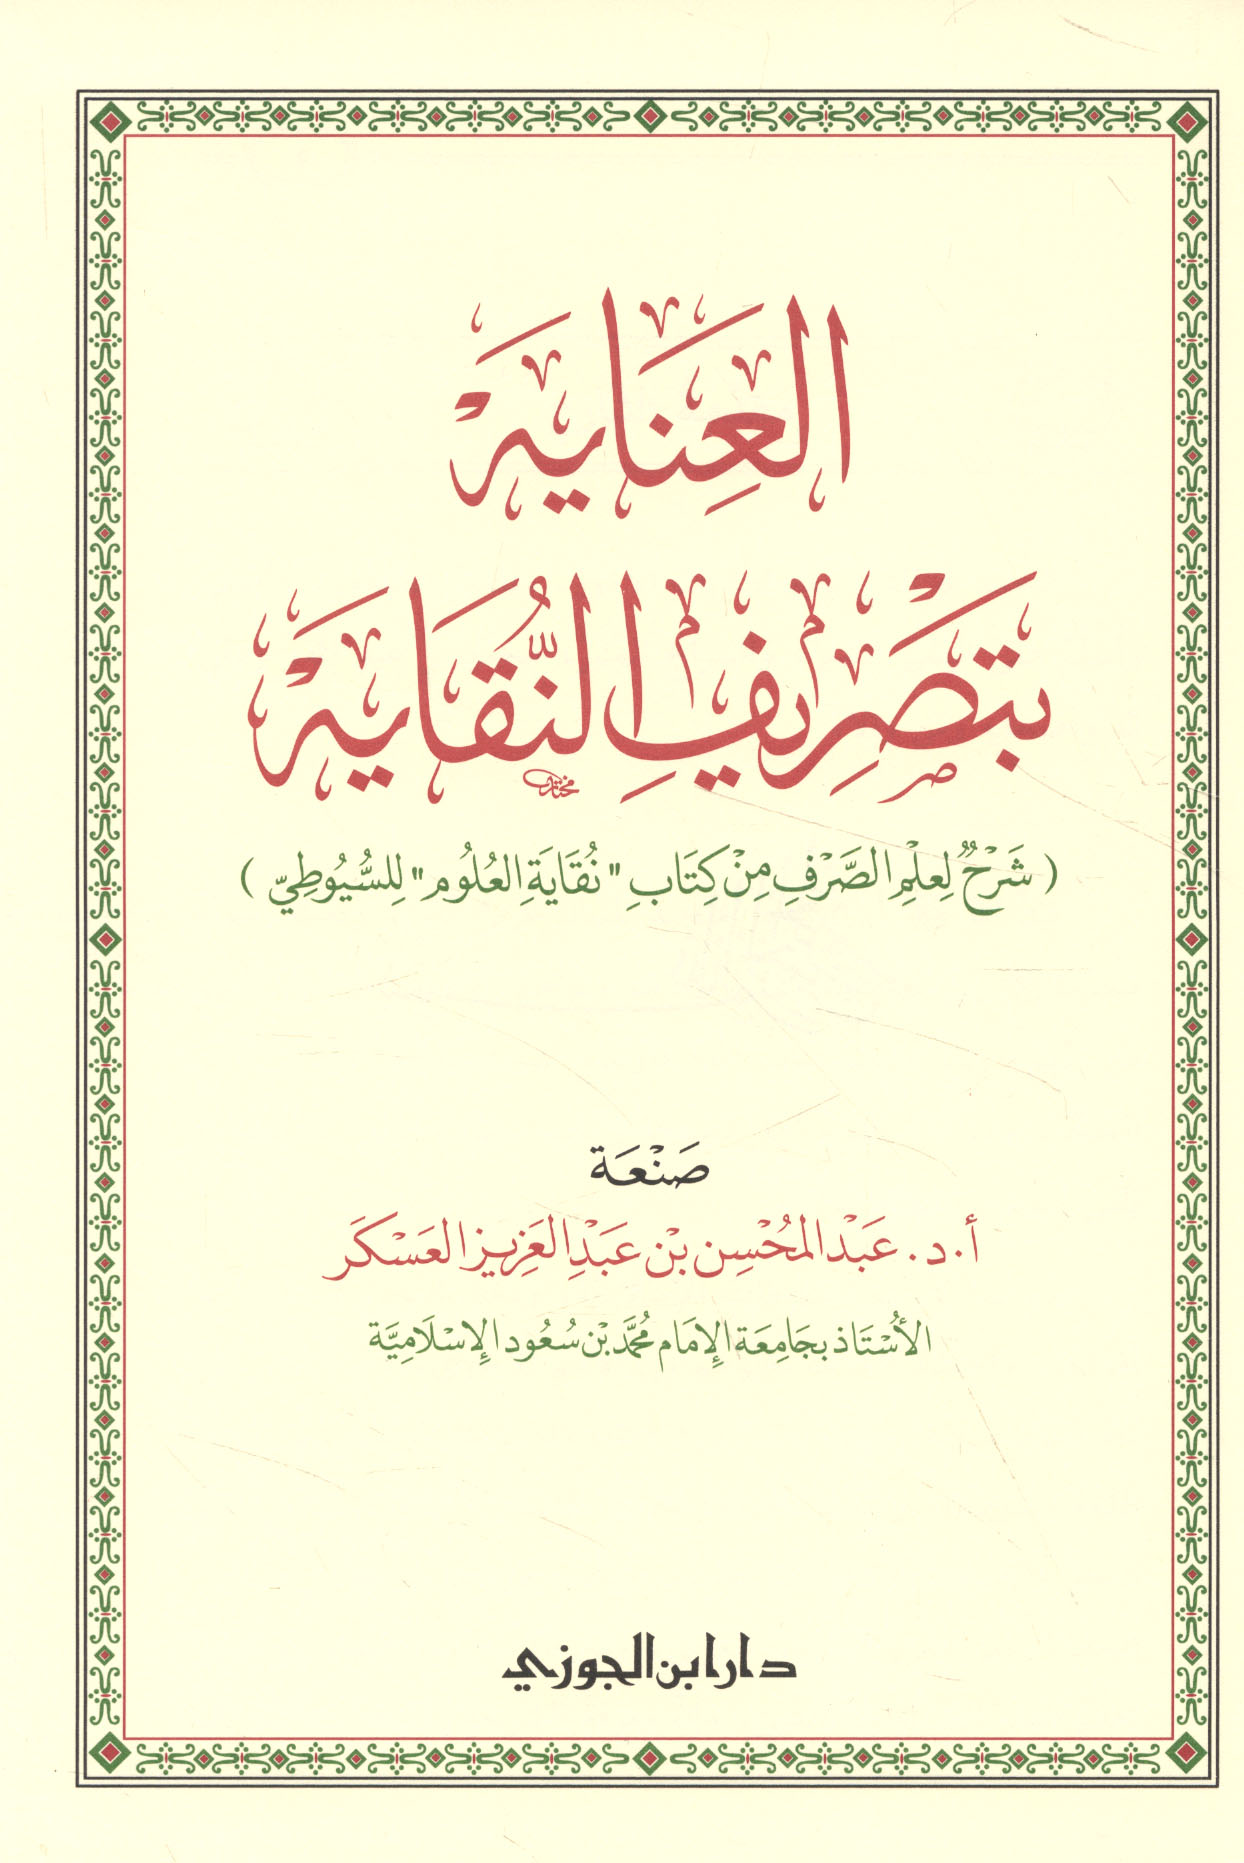 العِنايَة
بتَصْرِيفِ النُّقايَة
مختار
( شَرْحٌ لِعِلْمِ الصَّرْفِ مِنْ كِتَابِ "نُقَايَةِ العُلُوم" لِلسُّيُوطِيّ )
صَنْعَة
أ.د. عَبْدالمُحْسِن بْن عَبْدِالعَزِيز العَسْكَر
الأُسْتَاذ بجَامِعَة الإِمَام مُحَمَّد بْن سُعُود الإِسْلَامِيَّة
دار ابن الجوزي